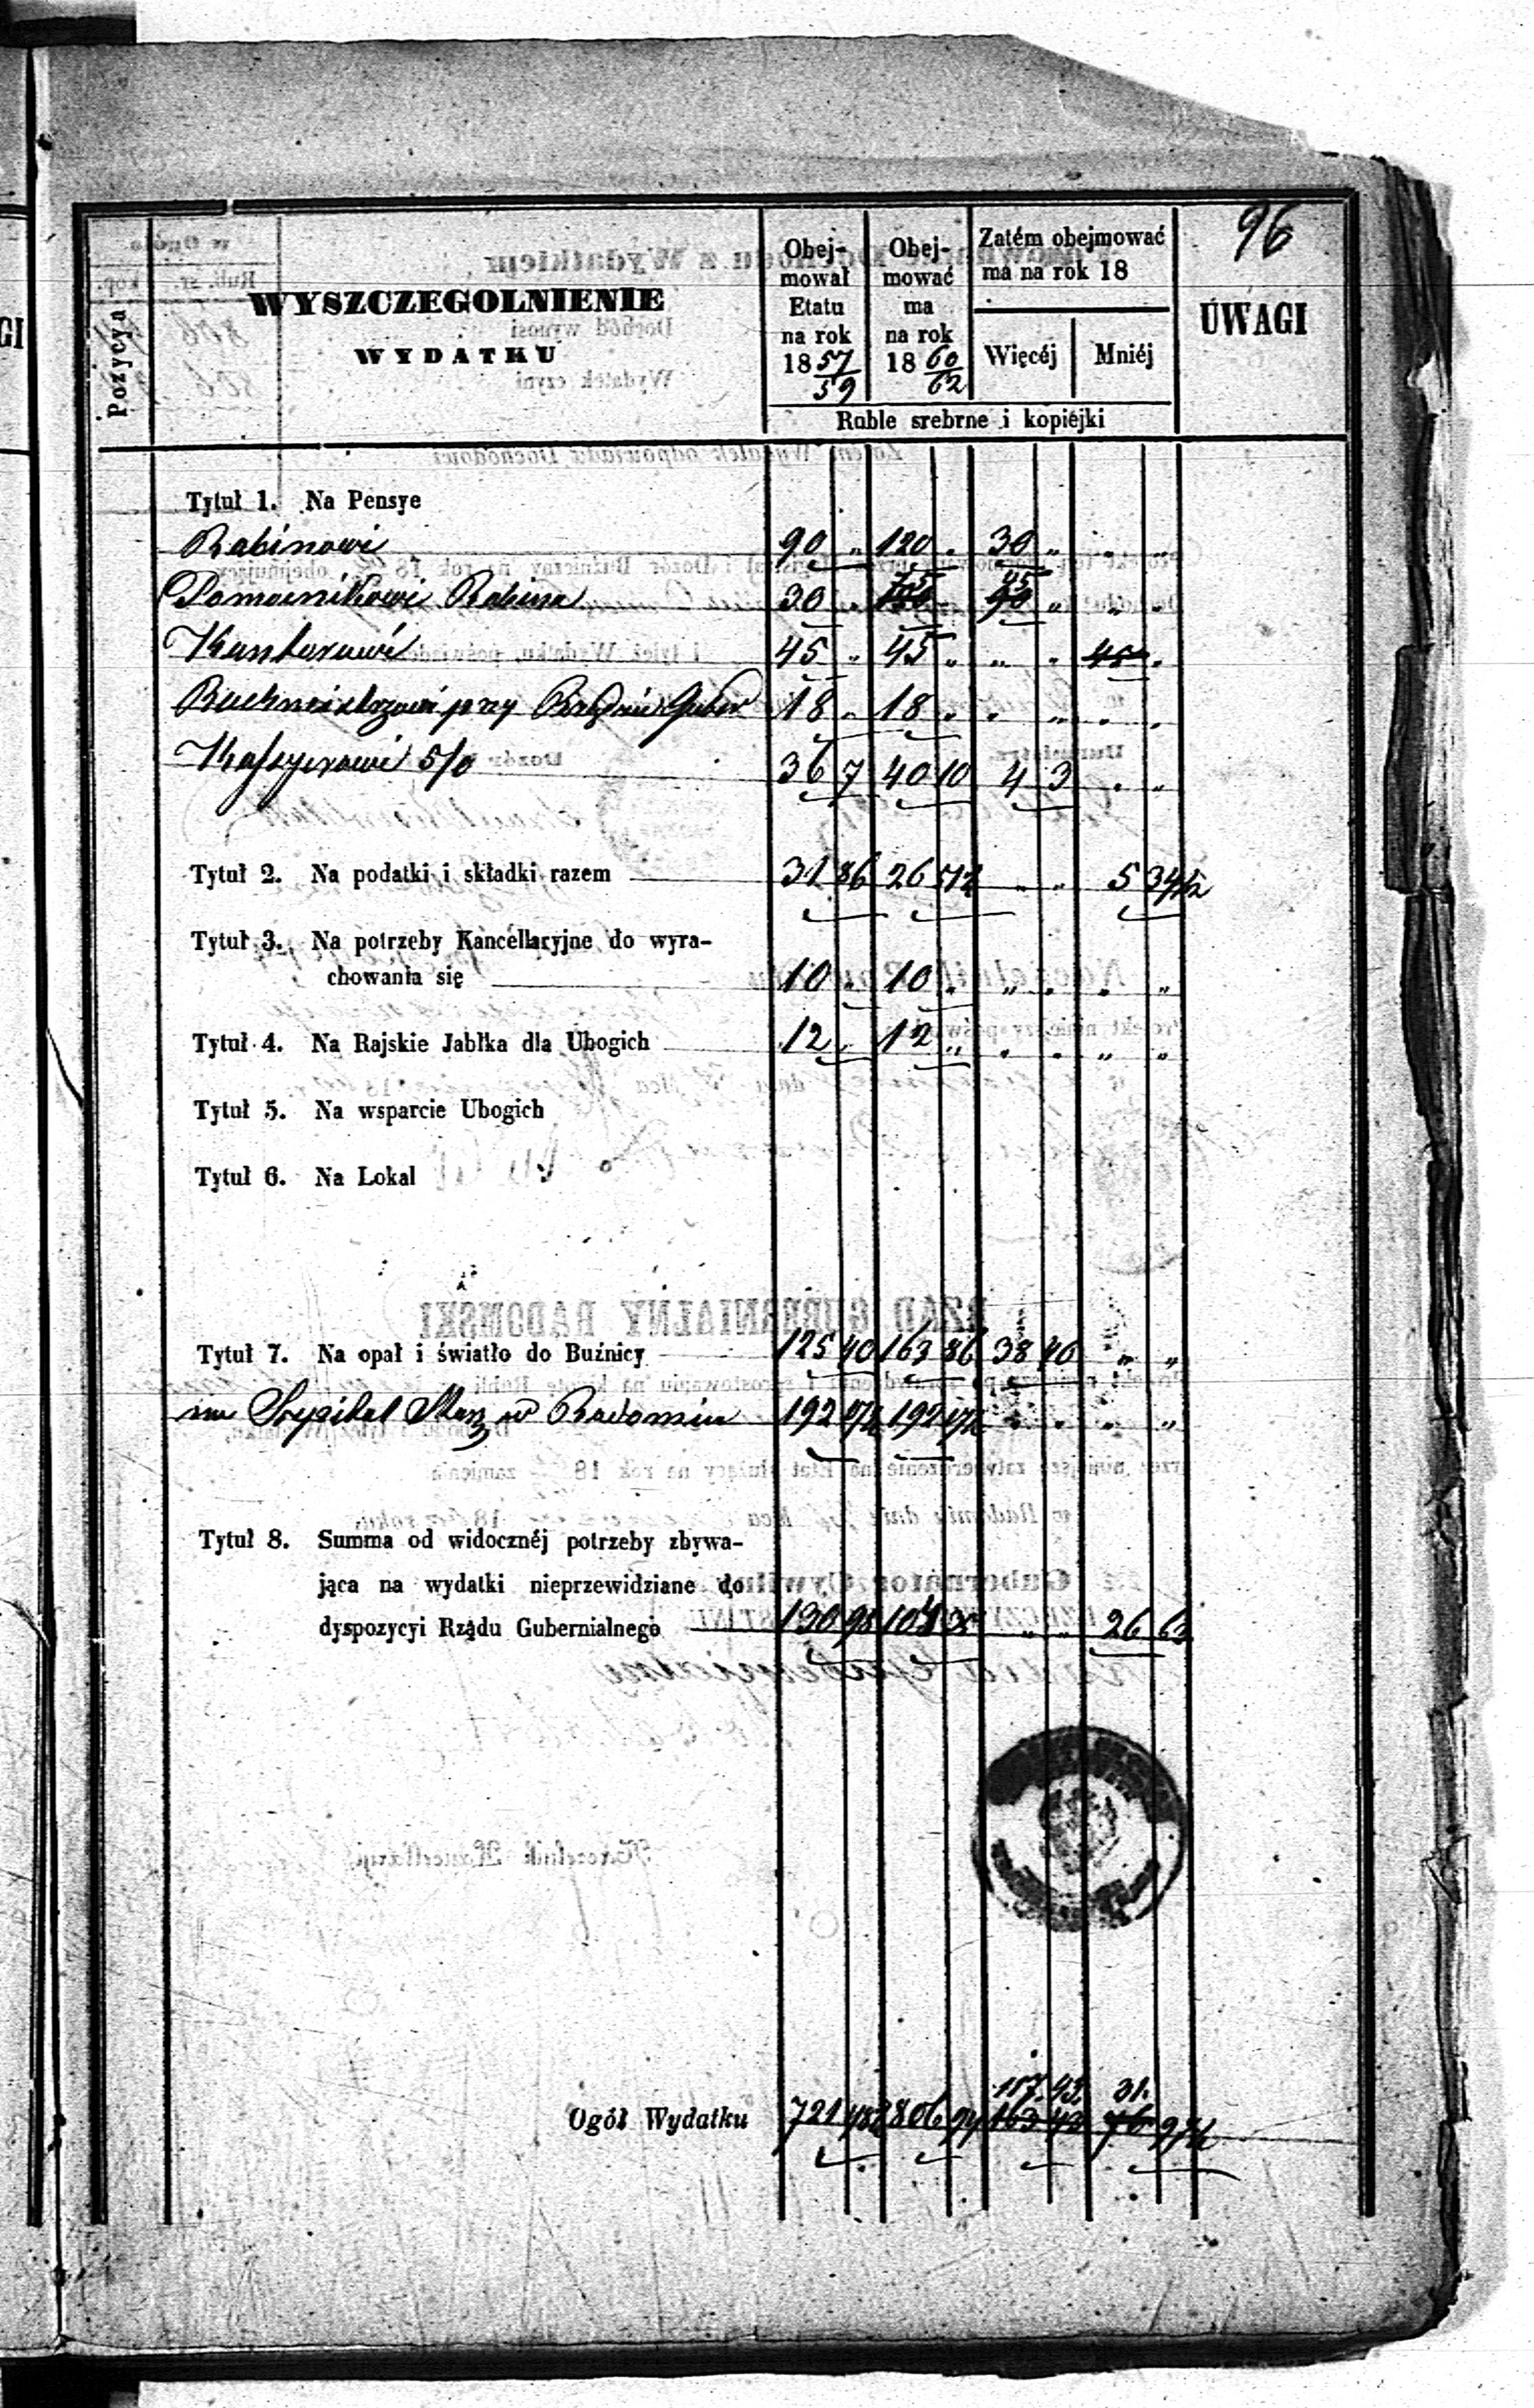 96
Pozycya
WYSZCZEGOLNIENIE
WYDATKU
Obej-
mował
Etatu
na rok
18 57/59
Obej-
mować
ma
na rok
18 60/62
Zatém obejmować
ma na rok 18
Więcéj
Mniéj
Ruble srebrne i kopiejki
UWAGI
Tytuł 1. Na Pensye
Rabinowi 90 „ 120 „ 30 „ „ „
Pomocnikowi Rabina 30 „ 75 „ 45 „ „ „
Kantorowi 45 „ 45 „ „ „ 45 „
Buchhalterzowi przy Rządzie Guber 18 „ 18 „ „ „ „ „
Kassyerowi 5/0 36 7 40 10 4 3 „ „
Tytuł 2. Na podatki i składki razem 31 86 26 51½ „ „ 5 34½
Tytuł 3. Na potrzeby Kancellaryjne do wyra-
chowania się 10 „ 10 „ „ „ „ „
Tytuł 4. Na Rajskie Jabłka dla Ubogich 12 „ 12 „ „ „ „ „
Tytuł 5. Na wsparcie Ubogich
Tytuł 6. Na Lokal
Tytuł 7. Na opał i światło do Buźnicy 125 40 163 86 38 46 „ „
na Szpital w Radomiu 192 17½ 192 17½ „ „ „ „
Tytuł 8. Summa od widocznéj potrzeby zbywa-
jąca na wydatki nieprzewidziane do
dyspozycyi Rządu Gubernialnego 130 98 104 35 „ „ 26 63
117 43 31
Ogół Wydatku 721 48½ 806 94 163 43 76 97½